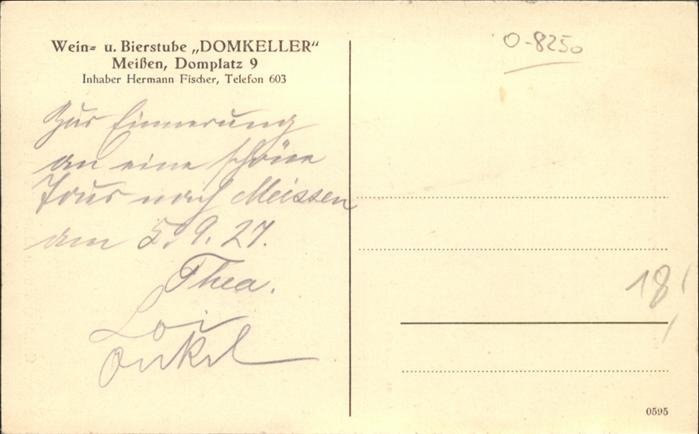 Wein= u. Bierstube „DOMKELLER“
Meißen, Domplatz 9
Inhaber Hermann Fischer, Telefon 603
Zur Erinnerung
an eine schöne
Tour nach Meissen
am 5. 9. 27.
Thea.
Onkel
O-8250
18,
0595